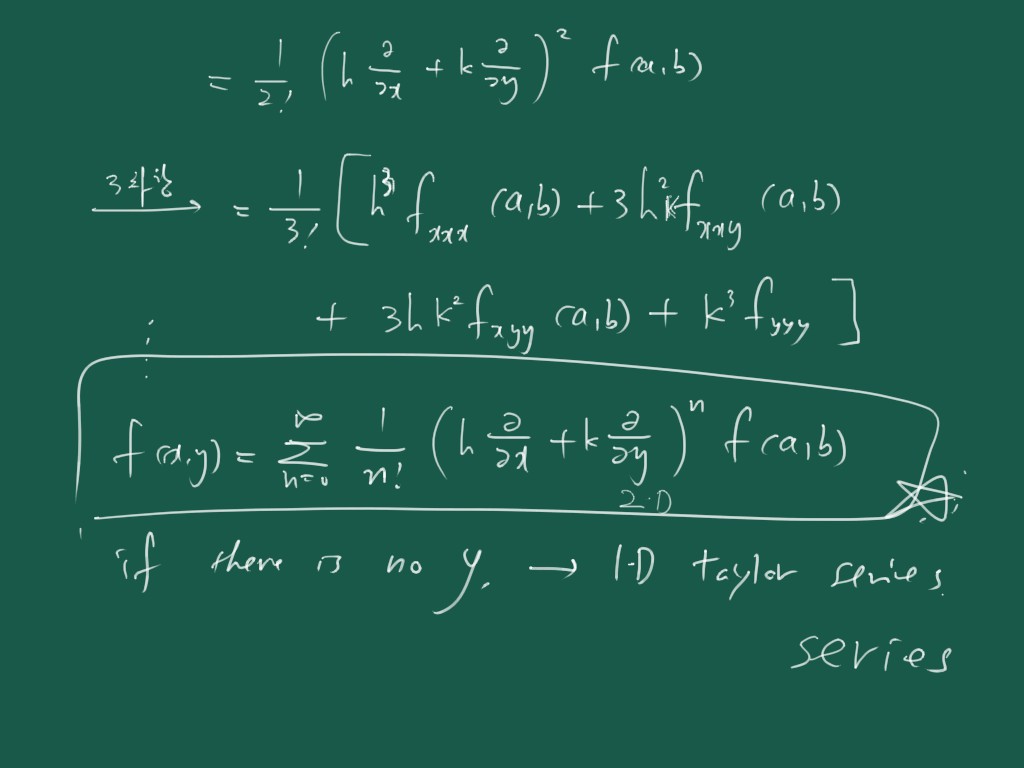 = 1/2! (h ∂/∂x + k ∂/∂y)² f(a,b)
= 1/3! [h³ f_xxx (a,b) + 3h²k f_xxy (a,b)
+ 3hk² f_xyy (a,b) + k³ f_yyy ]
f(x,y) = ∑_{n=0}^∞ 1/n! (h ∂/∂x + k ∂/∂y)ⁿ f(a,b)
2-D
if there is no y. → 1-D taylor series.
series